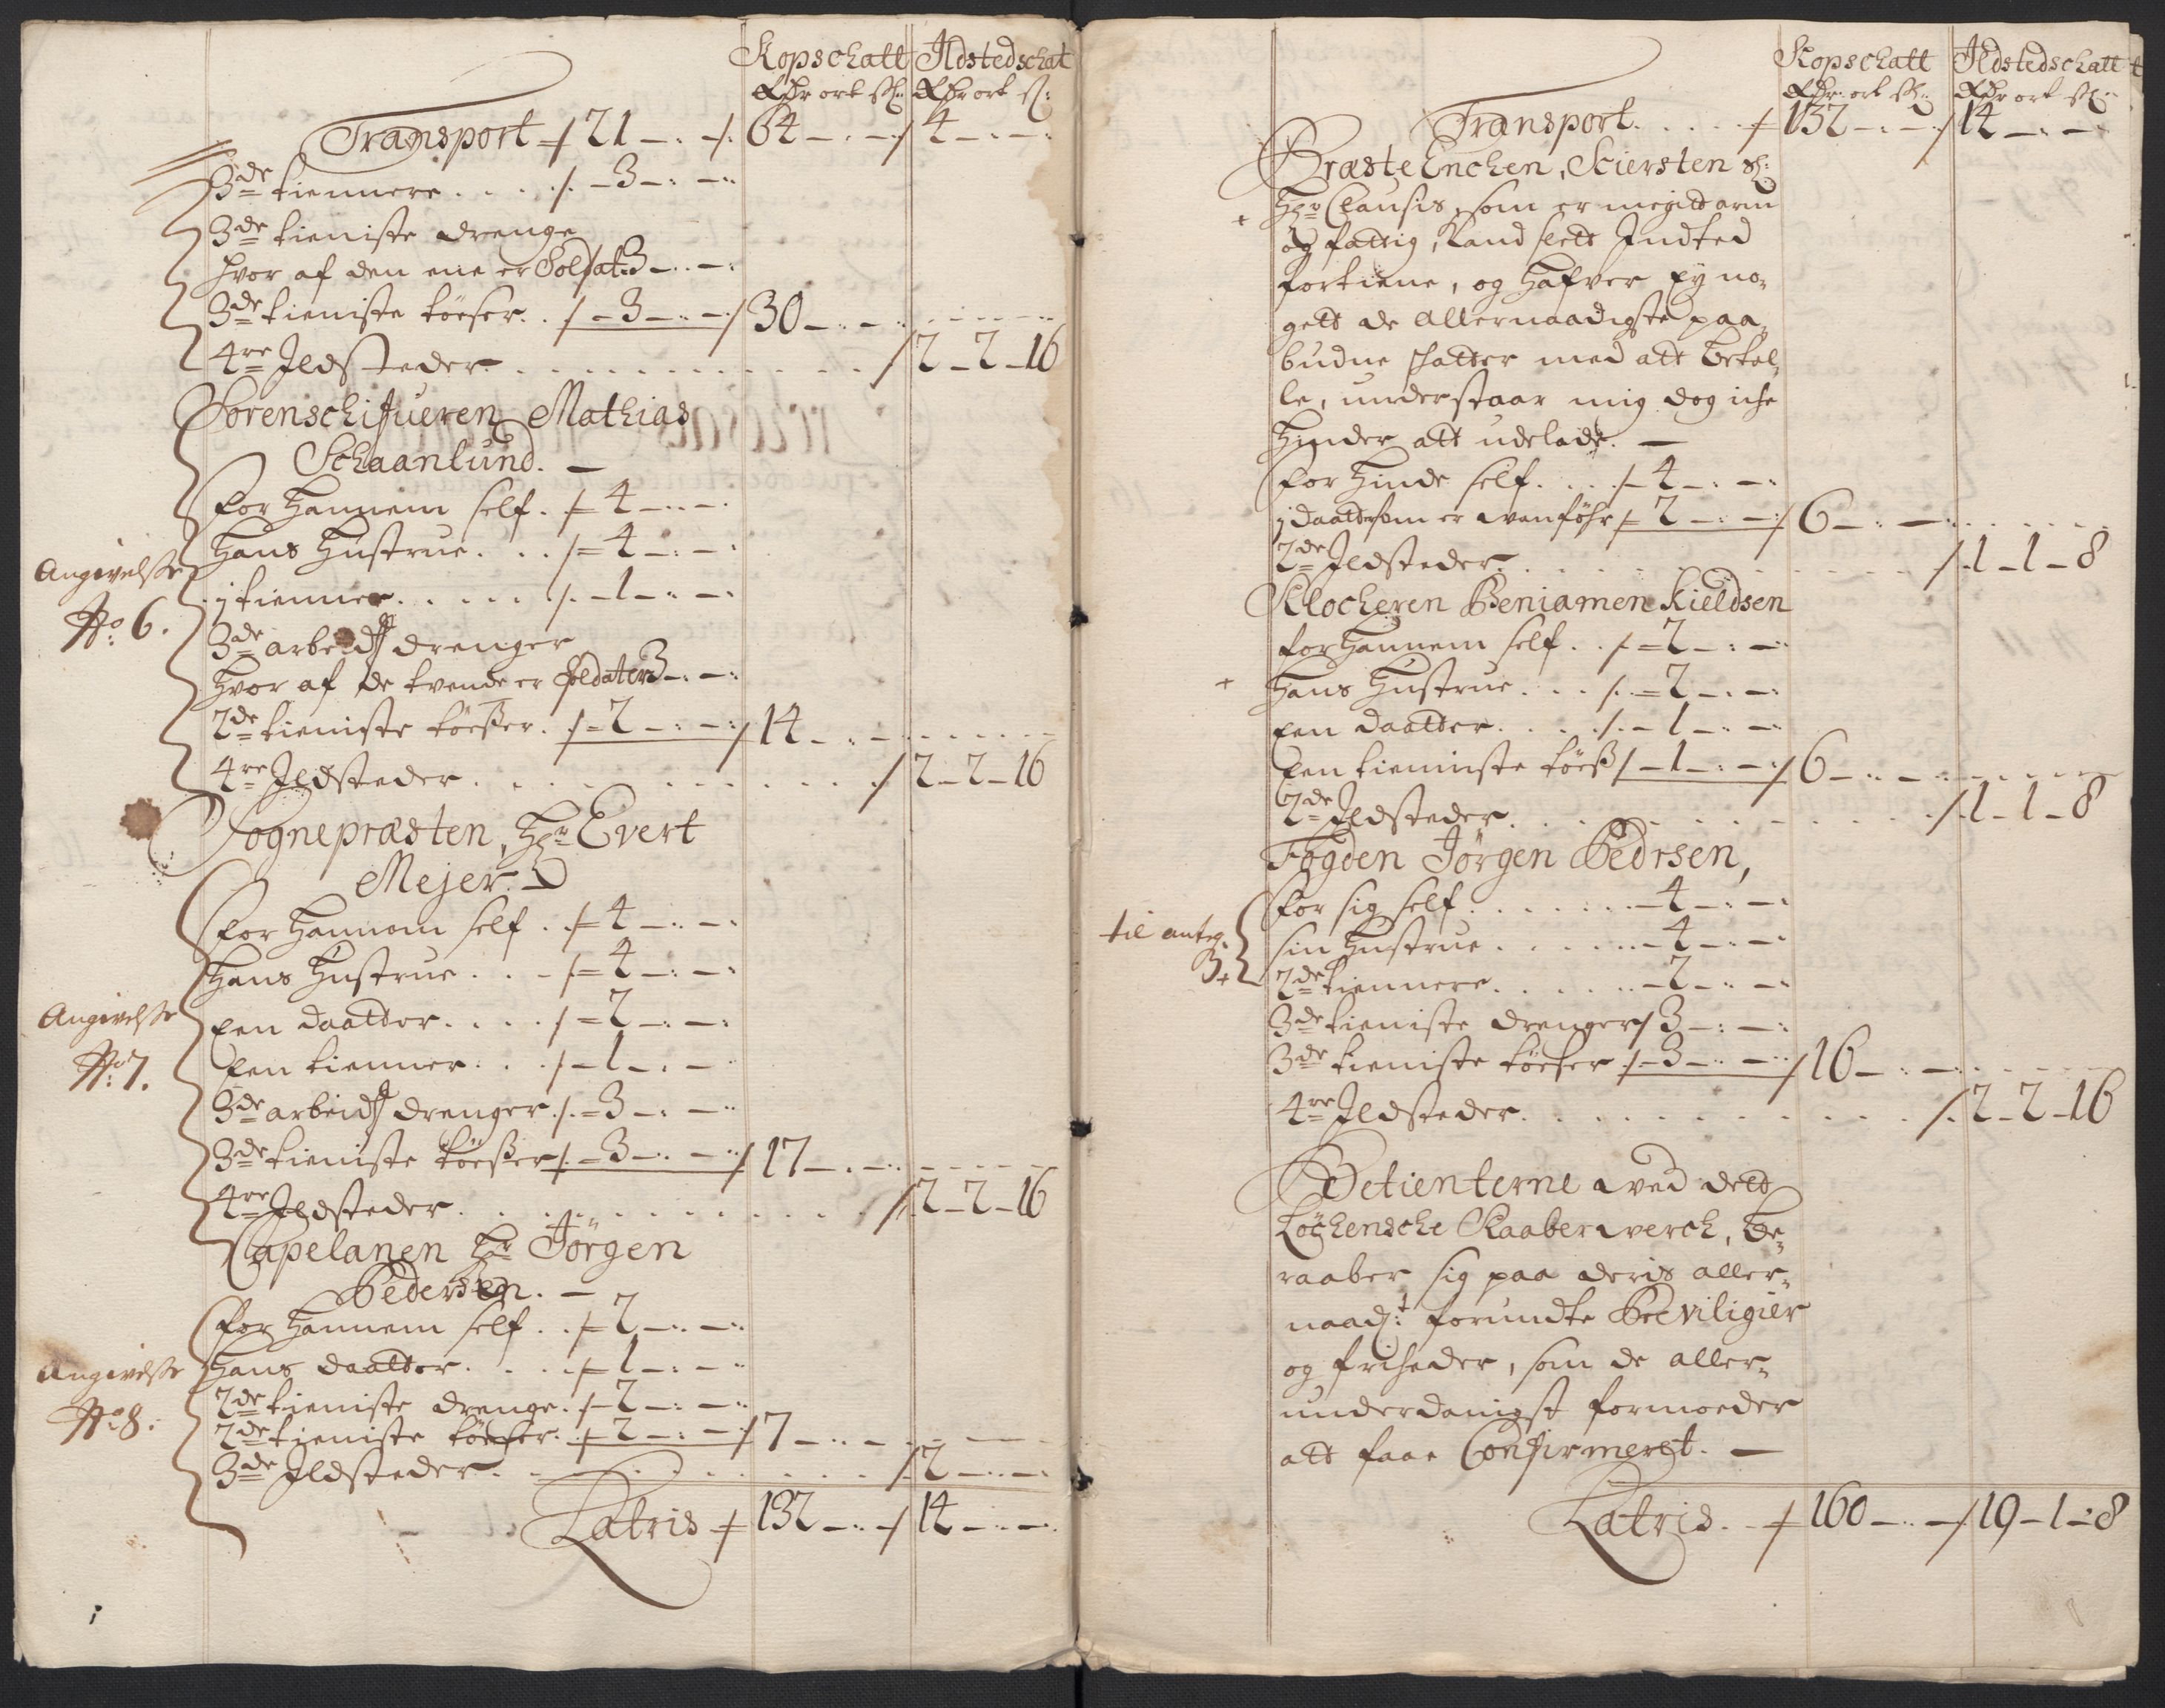 Kopschatt Ildstedschat
Rdr ort sk: Rdr ort sk:
Transport 21 — 64 — 4 —
3de tiennere . . . . 3 —
3de tieniste drenge
hvor af den ene er Soldat 3 —
3de tieniste töeser . . 3 — 30 —
4re Ildsteder . . . 2 - 2 - 16
Sorenschifueren Mathias
Schaanlund. —
for hannem self . 4 —
hans hustrue . . . 4 —
Angivelsse
j tienner . . . . 1 —
No 6.
3de arbeids drenger
hvor af de tvende er Soldater 3 —
2de tieniste töesser . 2 — 14 —
4re Ildsteder . . . 2 - 2 - 16
Sognepræsten, Hr Evert
Mejer. —
for hannom self . . 4 —
hans hustrue . . . 4 —
Angivelsse
een daatter . . . . 2 —
No 7.
Een tienner . . . 1 —
3de arbeids drenger . 3 —
3de tieniste töesser 3 — 17 —
4re Ildsteder . . . 2 - 2 - 16
Capelanen Hr Jörgen
Pedersen. —
for hannem self . . 2 —
Angivelsse
hans daatter . . . 1 —
2de tieniste drenge . 2 —
No 8.
2de tieniste töeser . 2 — 7 —
3de Ildsteder . . . 2 —
Latris 132 — 14 —
Kopschatt Ildstedschatt
Rdr ort sk: Rdr ort sk:
Transport . . . . 132 — 14 —
Præste Enchen, Kiersten Sl:
Hr Clausis, som er megitt arm
og fattig, kand slett Indted
fortiene, og hafver ey no-
gett de allernaadigste paa-
budne skatter med att betal-
le, understaar mig dog iche
hinder att udelade. —
for hinde self . . . 4 —
j daatter som er vanföhr 2 — 6 —
2de Ildsteder . . . 1 - 1 - 8
Klocheren Beniamen Kieldsen
for hannem self . . 2 —
hans hustrue . . . 2 —
een daatter . . . . 1 —
Een tienniste töess 1 — 6 —
2de Ildsteder . . . 1 - 1 - 8
Fogden Jörgen Pedrsen,
for sig self . . . . 4 —
til anteg.
3
sin hustrue . . . . 4 —
2de tiennere . . . . 2 —
3de tieniste drenger 3 —
3de tieniste töeser 3 — 16 —
4re Ildsteder . . . 2 - 2 - 16
Betienterne ved dett
Löchensche Kaaberverch, be-
raaber sig paa deris aller-
naadt: forundte Previligier
og friheder, som de aller-
underdanigst formoeder
att faae Confirmerit. —
Latris . 160 — 19 - 1 - 8